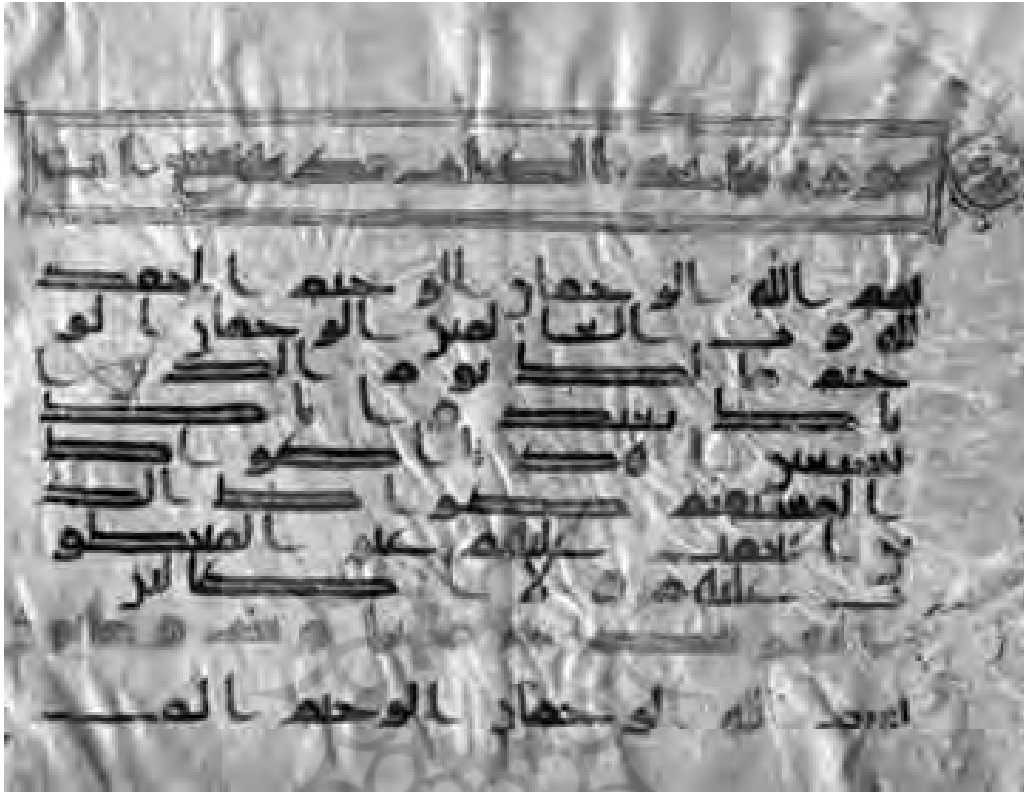 بسم الله الرحمن الرحيم الحمد
لله رب العلمين الرحمن الر
حيم ملك يوم الدين ا
ياك نعبد و اياك
نستعين اهدنا الصراط
المستقيم صراط الذ
ين انعمت عليهم غير المغضو
ب عليهم ولا الضالين
بسم الله الرحمن الرحيم الم